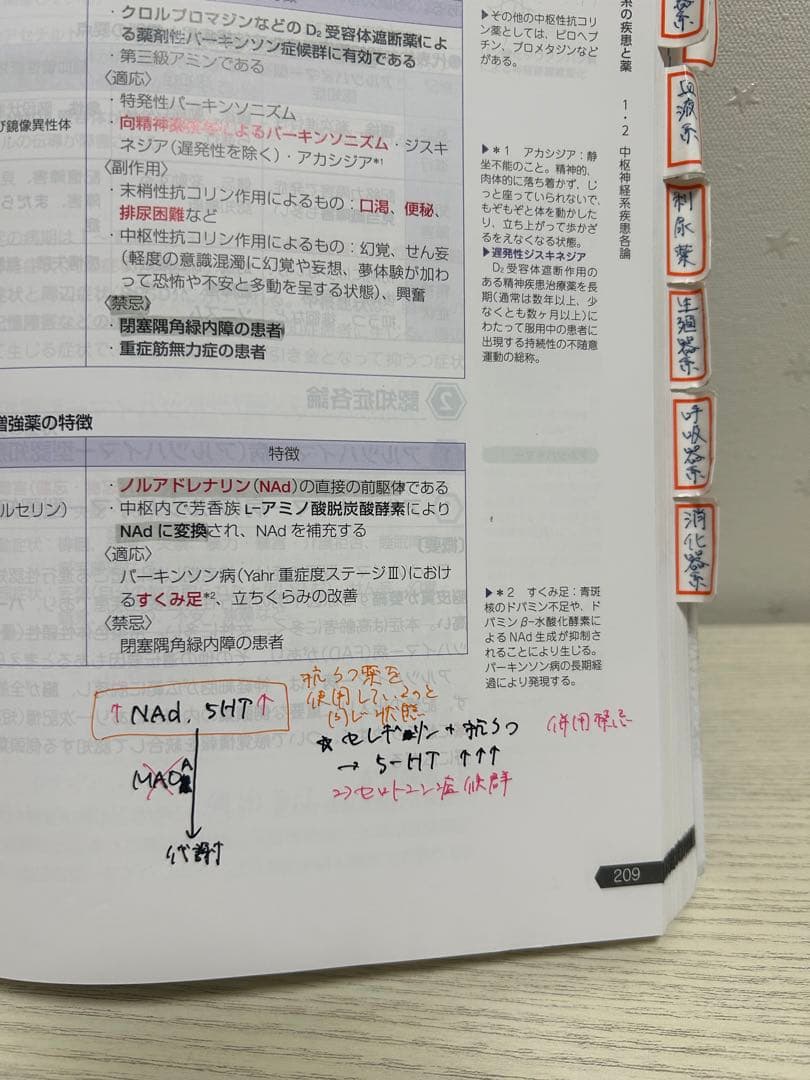 ・クロルプロマジンなどの D₂ 受容体遮断薬によ
る薬剤性パーキンソン症候群に有効である
・第三級アミンである
〈適応〉
・特発性パーキンソニズム
び鏡像異性体
・向精神薬投与によるパーキンソニズム・ジスキ
ネジア（遅発性を除く）・アカシジア*¹
〈副作用〉
・末梢性抗コリン作用によるもの：口渇、便秘、
排尿困難など
・中枢性抗コリン作用によるもの：幻覚、せん妄
（軽度の意識混濁に幻覚や妄想、夢体験が加わ
って恐怖や不安と多動を呈する状態）、興奮
〈禁忌〉
・閉塞隅角緑内障の患者
・重症筋無力症の患者
増強薬の特徴
特徴
ルセリン）
・ノルアドレナリン（NAd）の直接の前駆体である
・中枢内で芳香族 L-アミノ酸脱炭酸酵素により
NAd に変換され、NAd を補充する
〈適応〉
パーキンソン病（Yahr 重症度ステージⅢ）におけ
るすくみ足*²、立ちくらみの改善
〈禁忌〉
閉塞隅角緑内障の患者
▶その他の中枢性抗コリ
ン薬としては、ピロヘプ
チン、プロメタジンなど
がある。
▶＊1 アカシジア：静
坐不能のこと。精神的、
肉体的に落ち着かず、じ
っと座っていられないで、
もぞもぞと体を動かした
り、立ち上がって歩かざ
るをえなくなる状態。
▶遅発性ジスキネジア
D₂ 受容体遮断作用の
ある精神疾患治療薬を長
期（通常は数年以上、少
なくとも数ヶ月以上）に
わたって服用中の患者に
出現する持続性の不随意
運動の総称。
▶＊2 すくみ足：青斑
核のドパミン不足や、ド
パミン β-水酸化酵素に
よる NAd 生成が抑制さ
れることにより生じる。
パーキンソン病の長期
経過により発現する。
系の疾患と薬 1・2 中枢神経系疾患各論
血液系
利尿薬
生殖器系
呼吸器系
消化器系
↑NAd. 5HT↑
MAO
A
代謝
抗うつ薬を
使用しているのと
同じ状態
☆セレギリン＋抗うつ
併用禁忌
→ 5-HT ↑↑↑
セロトニン症候群
209